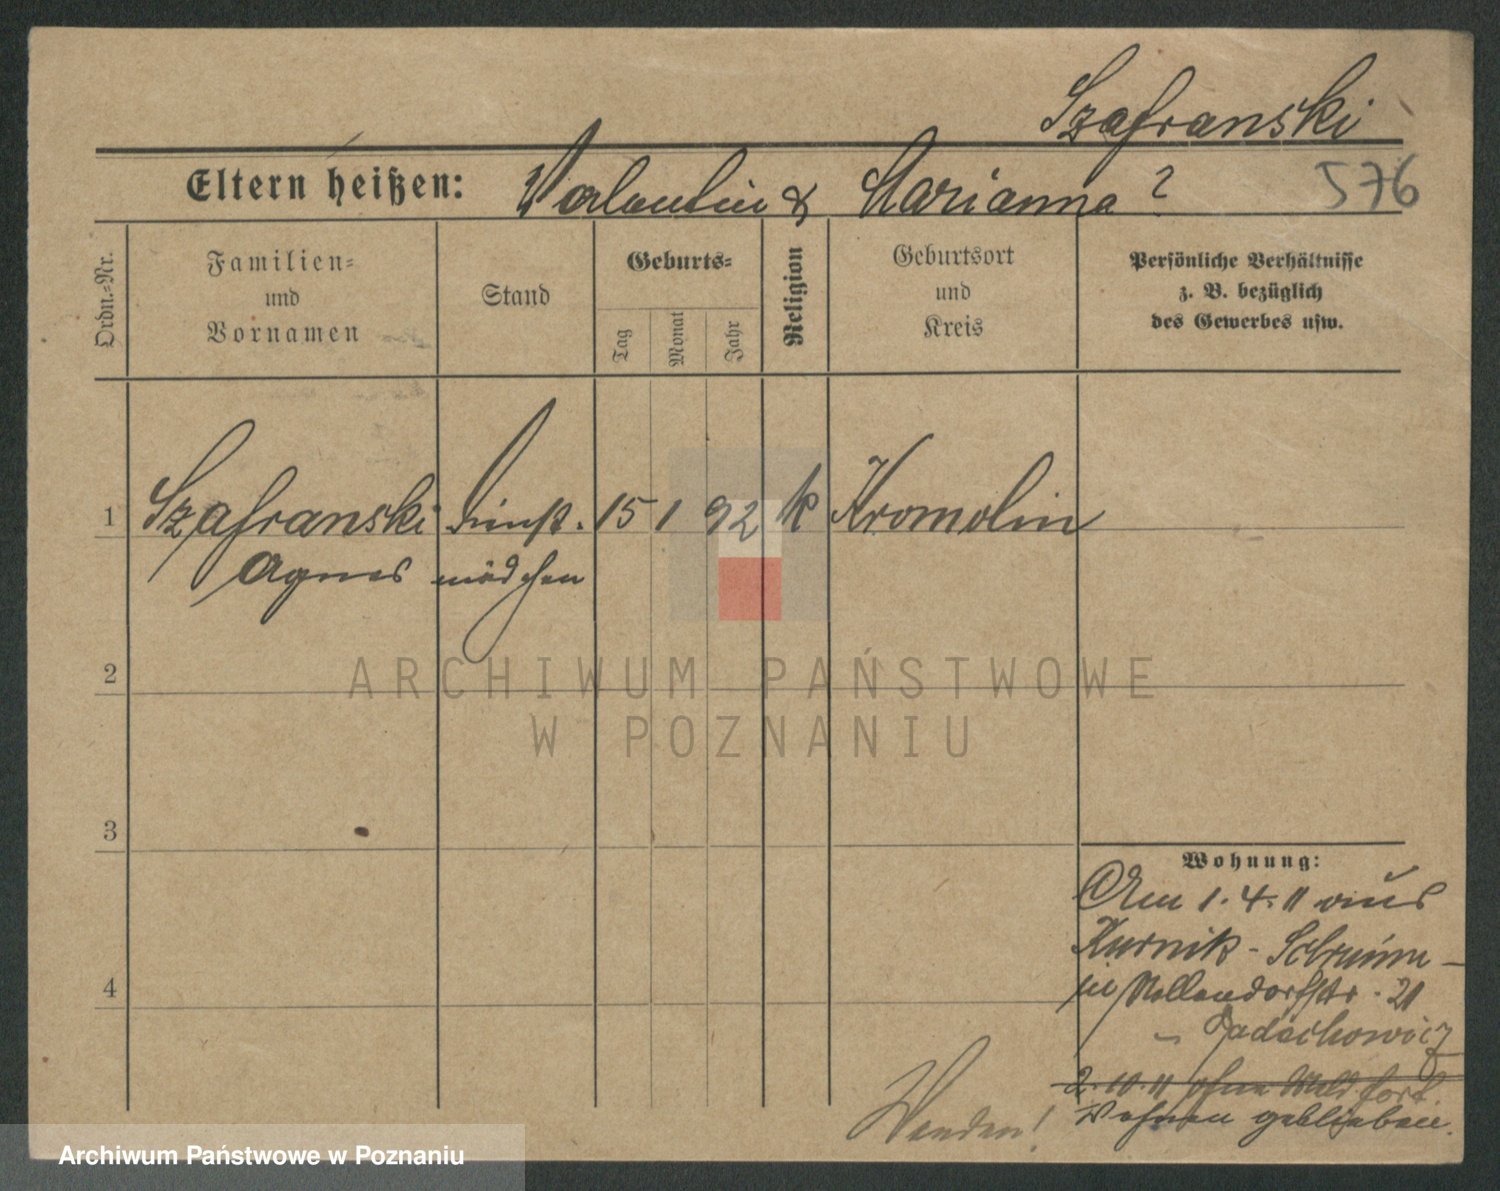 Szafranski
Eltern heißen: Valentin & Marianna ? 576
Ordn.-Nr.
Familien-
und
Vornamen
Stand
Geburts-
Tag
Monat
Jahr
Religion
Geburtsort
und
Kreis
Persönliche Verhältnisse
z. B. bezüglich
des Gewerbes usw.
1 Szafranski Dienst- 15 1 92 k Kromolin
Agnes mädchen
2
3
4
Wohnung:
Am 1. 4. 11 aus
Kurnik - Schrimm -
in Nollendorfstr. 21
Radachowicz
2. 10. 11 ohne Meld fort.
Wohnen geblieben.
Wenden!
ARCHIWUM PAŃSTWOWE
W POZNANIU
Archiwum Państwowe w Poznaniu